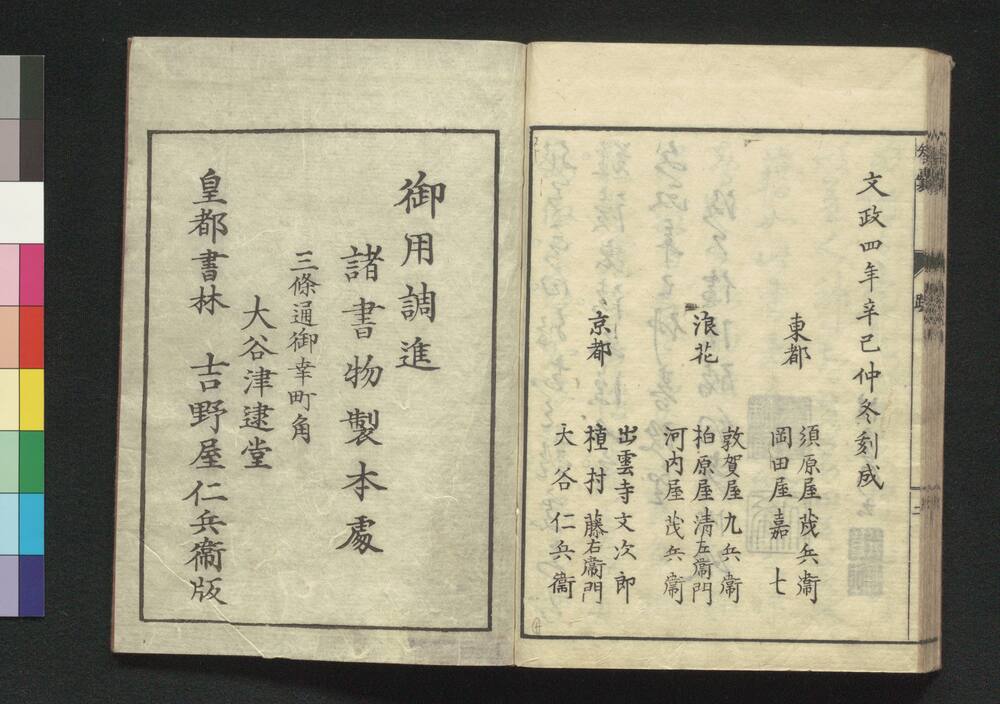 文政四年辛巳仲冬刻成
東都
須原屋茂兵衞
岡田屋嘉七
浪花
敦賀屋九兵衞
柏原屋清左衞門
河内屋茂兵衞
京都
出雲寺文次郎
植村藤右衞門
大谷仁兵衞
御用調進
諸書物製本處
三條通御幸町角
大谷津逮堂
皇都書林 吉野屋仁兵衞版